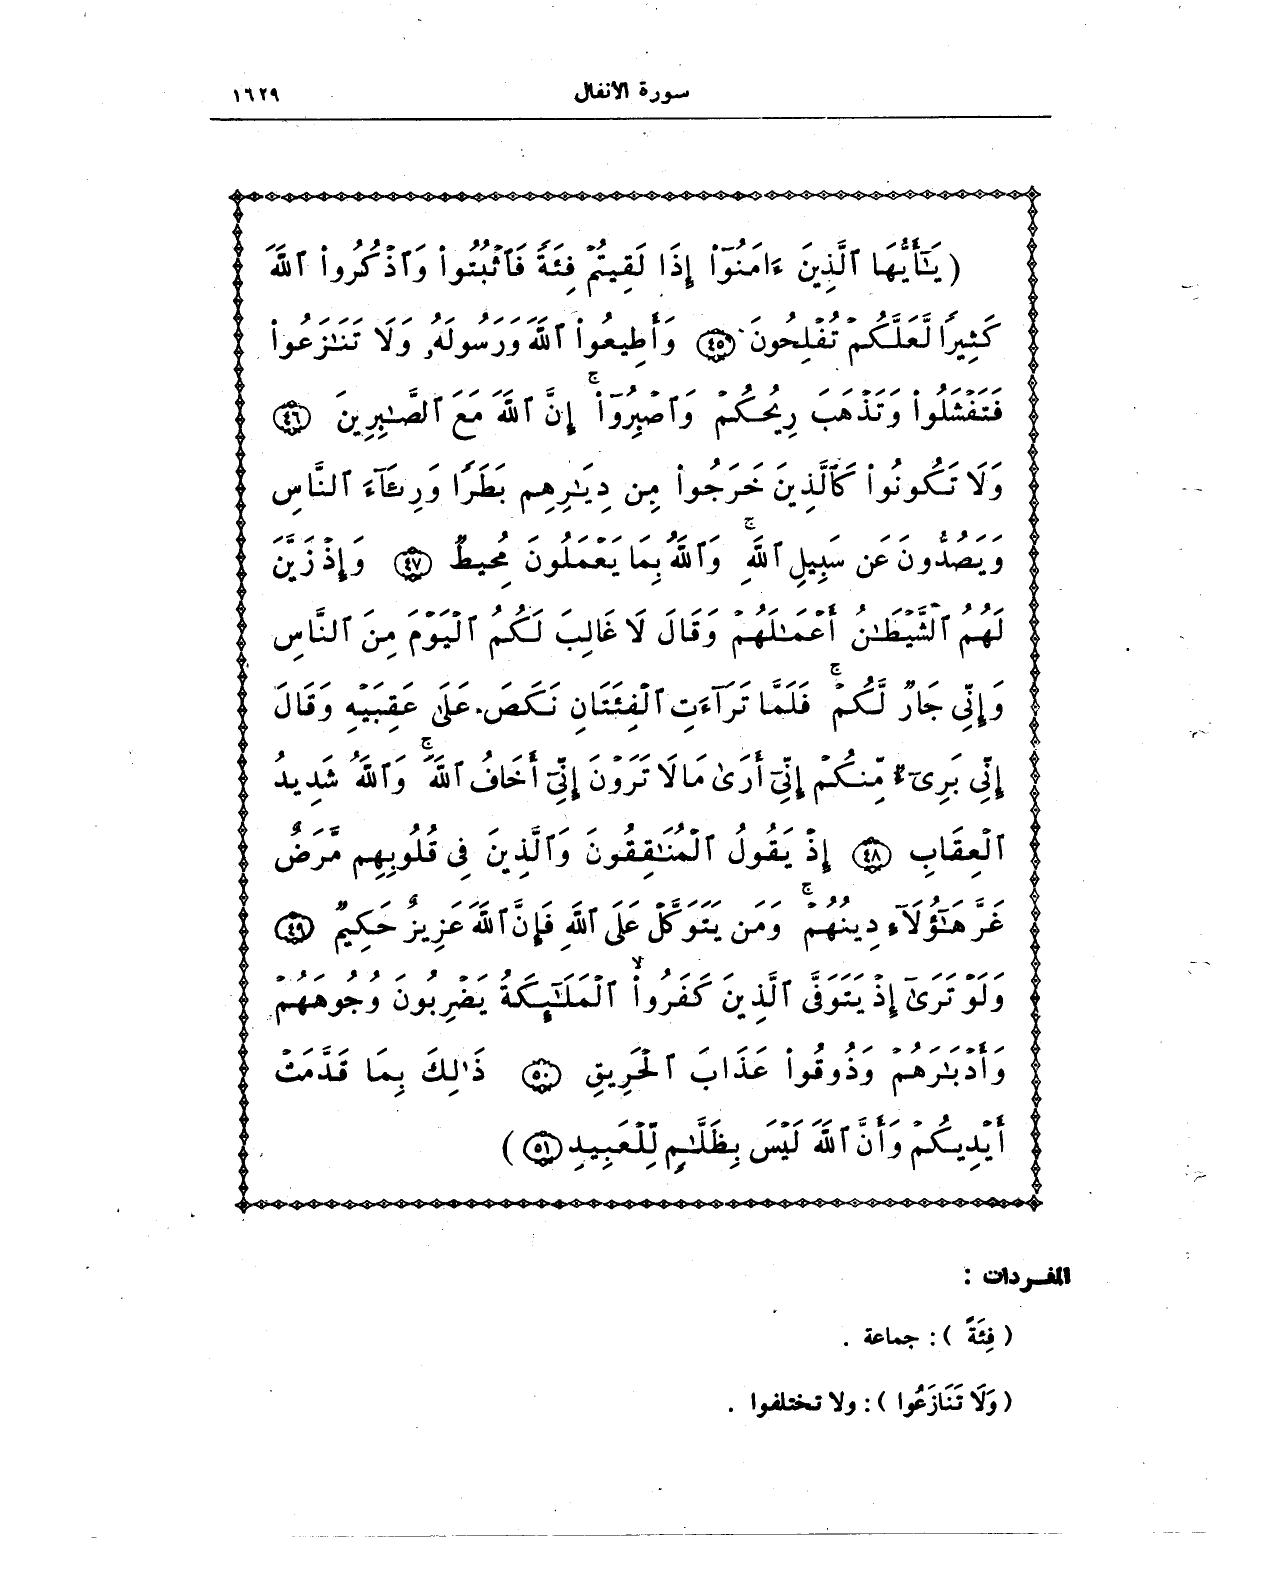 سورة الأنفال ١٦٢٩
( يَـٰٓأَيُّهَا ٱلَّذِينَ ءَامَنُوٓا۟ إِذَا لَقِيتُمْ فِئَةً فَٱثْبُتُوا۟ وَٱذْكُرُوا۟ ٱللَّهَ
كَثِيرًا لَّعَلَّكُمْ تُفْلِحُونَ ٤٥ وَأَطِيعُوا۟ ٱللَّهَ وَرَسُولَهُۥ وَلَا تَنَـٰزَعُوا۟
فَتَفْشَلُوا۟ وَتَذْهَبَ رِيحُكُمْ وَٱصْبِرُوٓا۟ ۚ إِنَّ ٱللَّهَ مَعَ ٱلصَّـٰبِرِينَ ٤٦
وَلَا تَكُونُوا۟ كَٱلَّذِينَ خَرَجُوا۟ مِن دِيَـٰرِهِم بَطَرًا وَرِئَآءَ ٱلنَّاسِ
وَيَصُدُّونَ عَن سَبِيلِ ٱللَّهِ ۚ وَٱللَّهُ بِمَا يَعْمَلُونَ مُحِيطٌ ٤٧ وَإِذْ زَيَّنَ
لَهُمُ ٱلشَّيْطَـٰنُ أَعْمَـٰلَهُمْ وَقَالَ لَا غَالِبَ لَكُمُ ٱلْيَوْمَ مِنَ ٱلنَّاسِ
وَإِنِّى جَارٌ لَّكُمْ ۚ فَلَمَّا تَرَآءَتِ ٱلْفِئَتَانِ نَكَصَ عَلَىٰ عَقِبَيْهِ وَقَالَ
إِنِّى بَرِىٓءٌ مِّنكُمْ إِنِّىٓ أَرَىٰ مَا لَا تَرَوْنَ إِنِّىٓ أَخَافُ ٱللَّهَ ۚ وَٱللَّهُ شَدِيدُ
ٱلْعِقَابِ ٤٨ إِذْ يَقُولُ ٱلْمُنَـٰفِقُونَ وَٱلَّذِينَ فِى قُلُوبِهِم مَّرَضٌ
غَرَّ هَـٰٓؤُلَآءِ دِينُهُمْ ۚ وَمَن يَتَوَكَّلْ عَلَى ٱللَّهِ فَإِنَّ ٱللَّهَ عَزِيزٌ حَكِيمٌ ٤٩
وَلَوْ تَرَىٰٓ إِذْ يَتَوَفَّى ٱلَّذِينَ كَفَرُوا۟ ۙ ٱلْمَلَـٰٓئِكَةُ يَضْرِبُونَ وُجُوهَهُمْ
وَأَدْبَـٰرَهُمْ وَذُوقُوا۟ عَذَابَ ٱلْحَرِيقِ ٥٠ ذَٰلِكَ بِمَا قَدَّمَتْ
أَيْدِيكُمْ وَأَنَّ ٱللَّهَ لَيْسَ بِظَلَّـٰمٍ لِّلْعَبِيدِ ٥١ )
المفـردات :
( فِئَةً ) : جماعة .
( وَلَا تَنَازَعُوا ) : ولا تختلفوا .